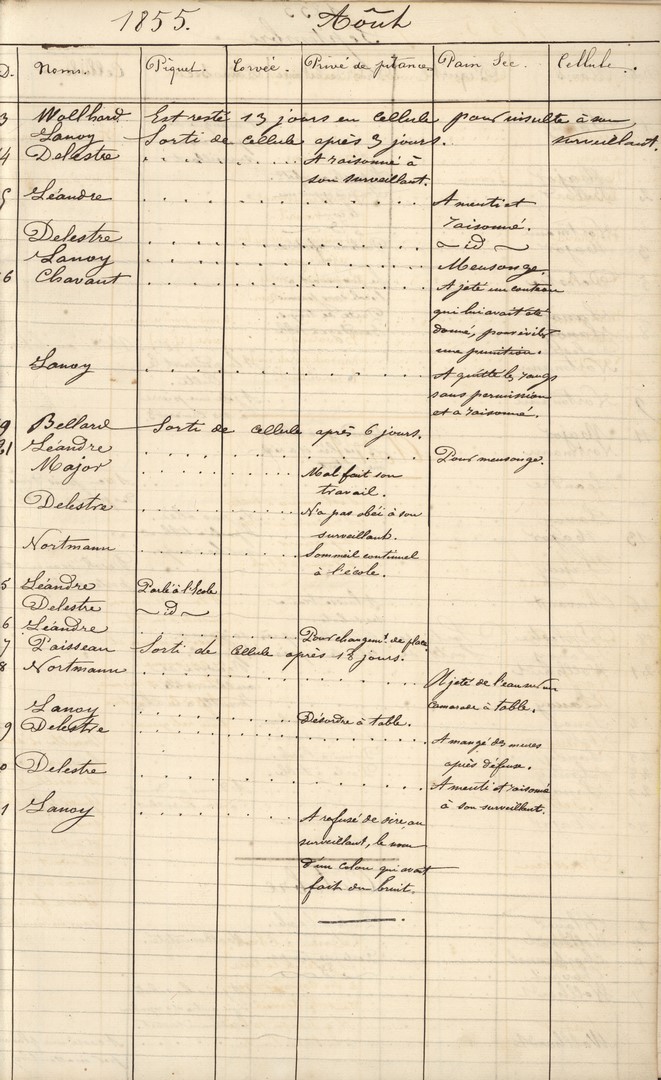 1855. Août
D. Noms. Piquet. Corvée. Privé de pitance. Pain Sec. Cellule.
3 Wollhard Est resté 13 jours en cellule pour insulte à son
surveillant.
Lanoy Sorti de cellule après 3 jours.
4 Delestre A raisonné à
son surveillant.
5 Léandre A menti et
raisonné.
Delestre id
Lanoy Mensonge.
6 Chavant A jeté un couteau
qui lui avait été
donné, pour éviter
une punition.
Lanoy A quitté les rangs
sans permission
et a raisonné.
9 Bellard Sorti de cellule après 6 jours.
21 Léandre Pour mensonge.
Major Mal fait son
travail.
Delestre N'a pas obéi à son
surveillant.
Nortmann Sommeil continuel
à l'école.
5 Léandre Parlé à l'École
Delestre id
6 Léandre Pour changemt. de place.
7 Paisseau Sorti de cellule après 18 jours.
8 Nortmann A jeté de l'eau sur un
camarade à table.
Lanoy Désordre à table.
9 Delestre A mangé des mures
après défense.
0 Delestre A menti et raisonné
à son surveillant.
1 Lanoy A refusé de dire au
surveillant, le nom
d'un colon qui avait
fait du bruit.